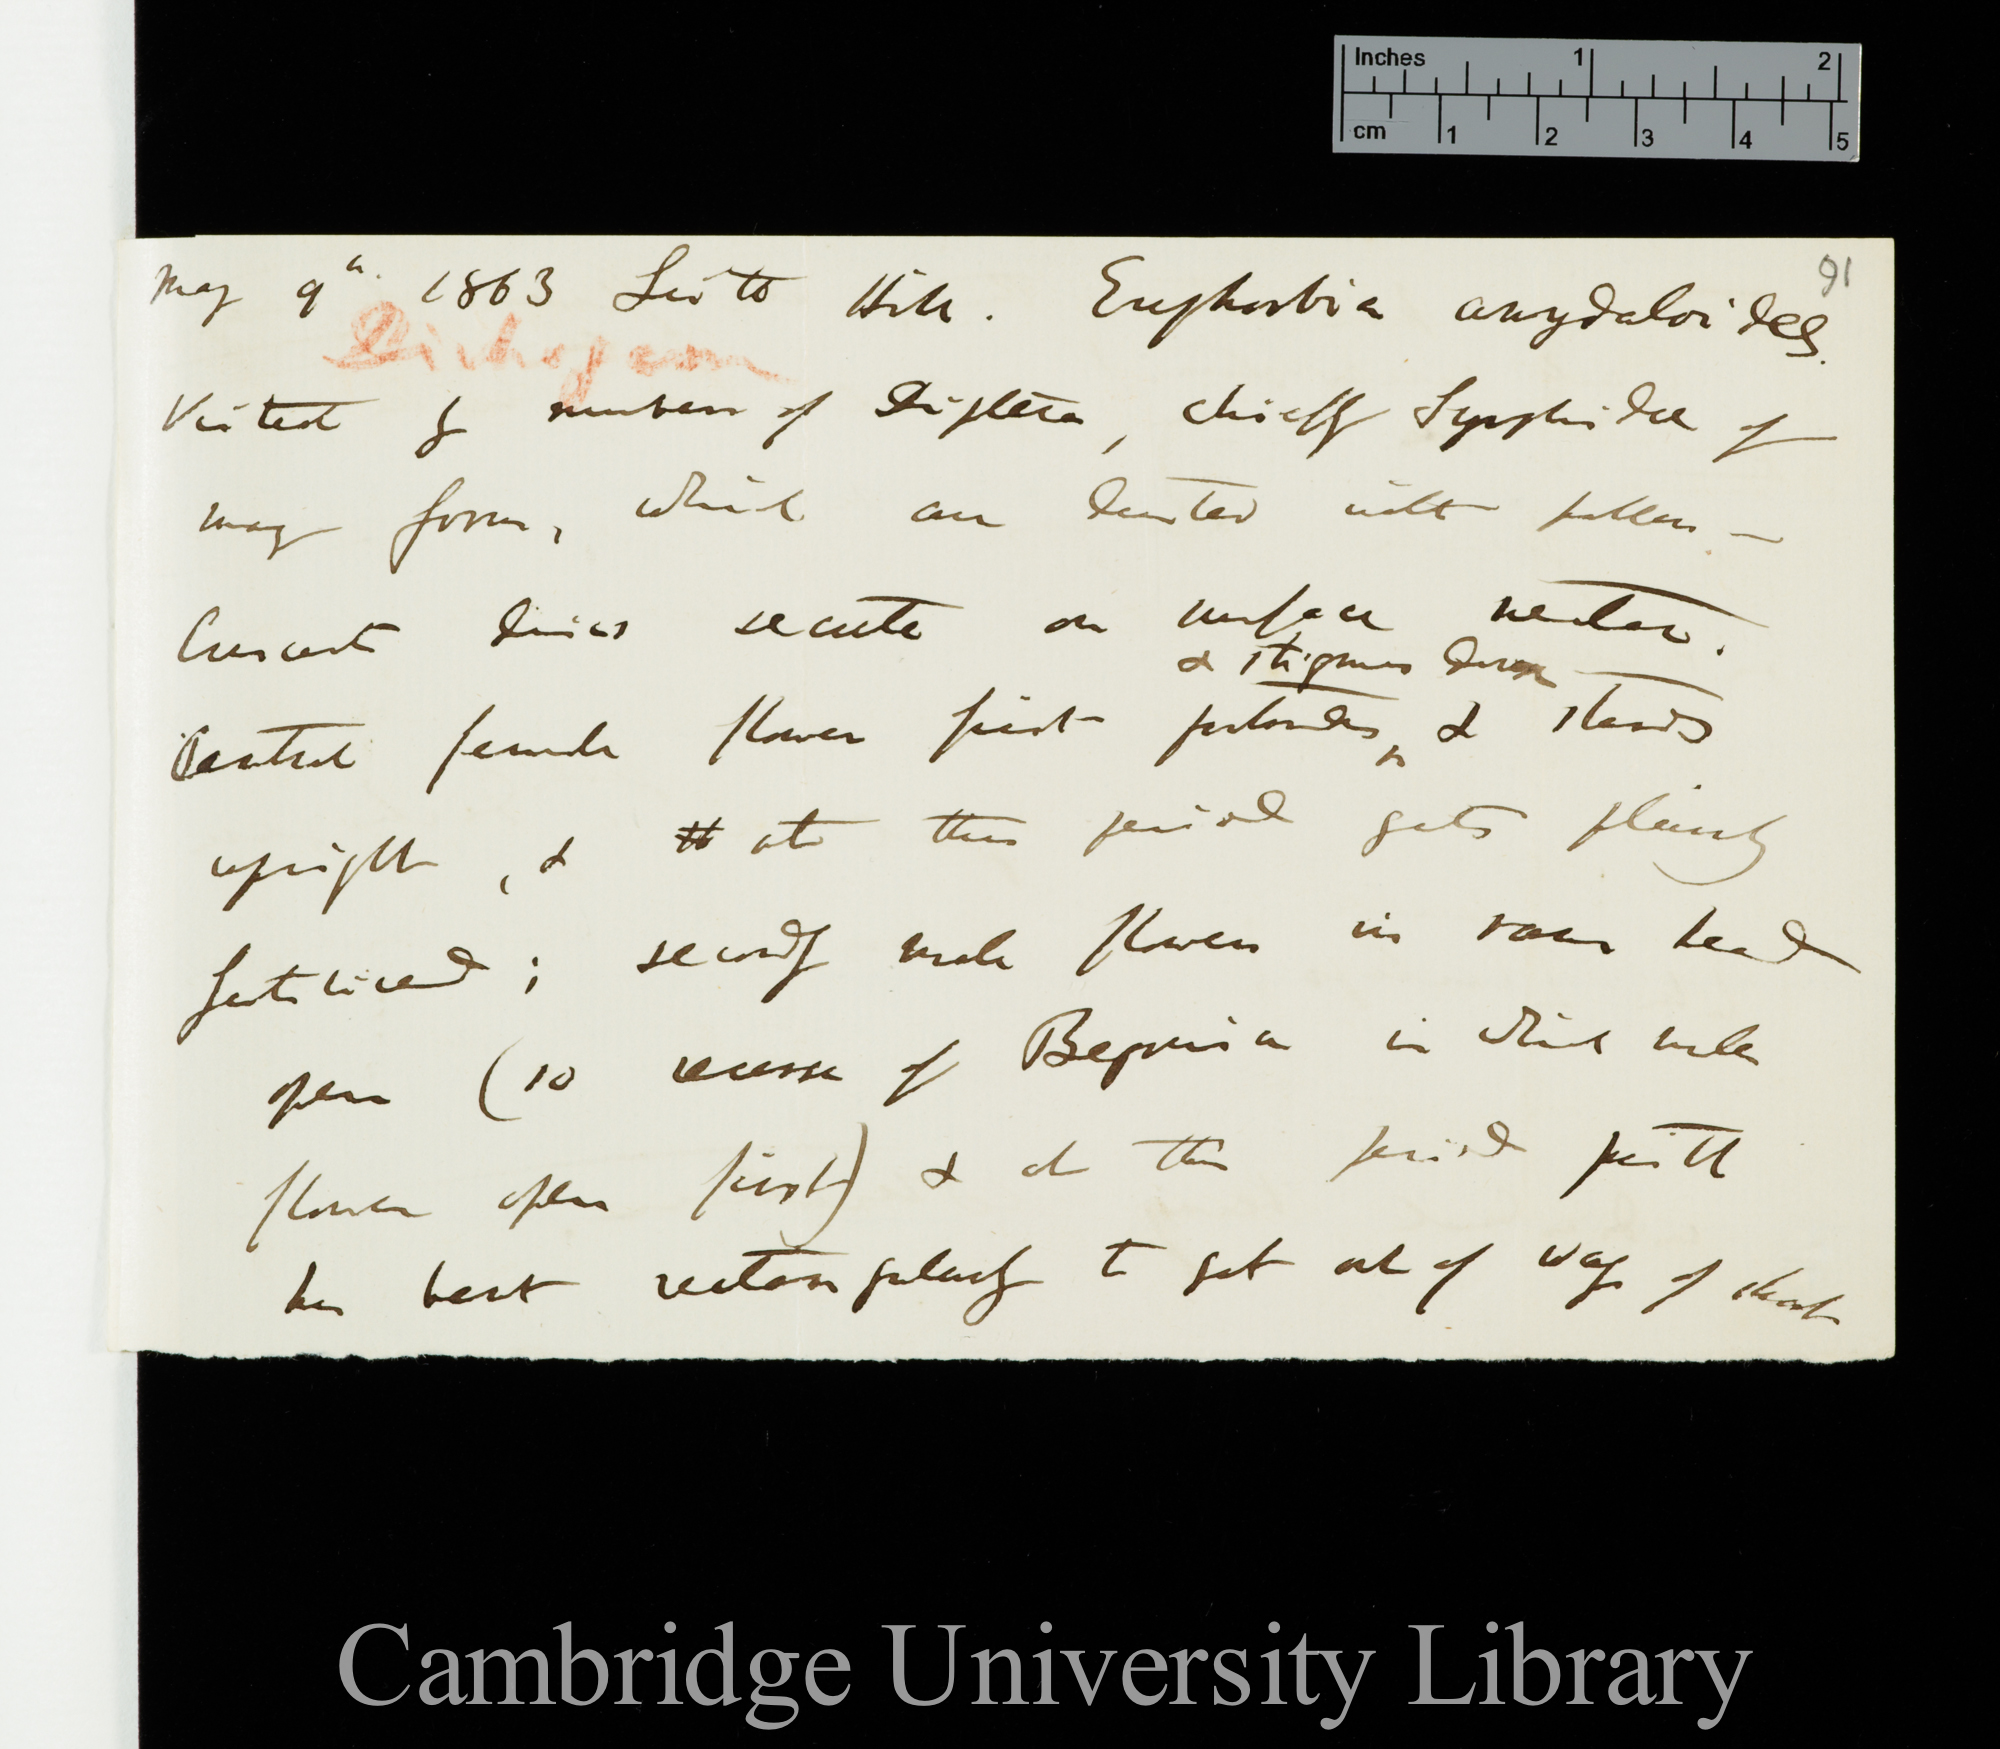 Inches 1 2
cm 1 2 3 4 5
91
May 9th. 1863 Leith Hill. Euphorbia amydaloides.
Dichogam
Visited by numbers of Diptera, chiefly Syrphidae of
many forms, which are dusted with pollen —
Crescent discs secrete on surface nectar.
& stigmas
Central female flower first protrudes, & stands
upright, & at this period gets plainly
fertilised; secondly male flowers in same head
open (so reverse of Begonia in which male
flower open first) & at this period pistil
has bent rectangularly to get out of way of
Cambridge University Library